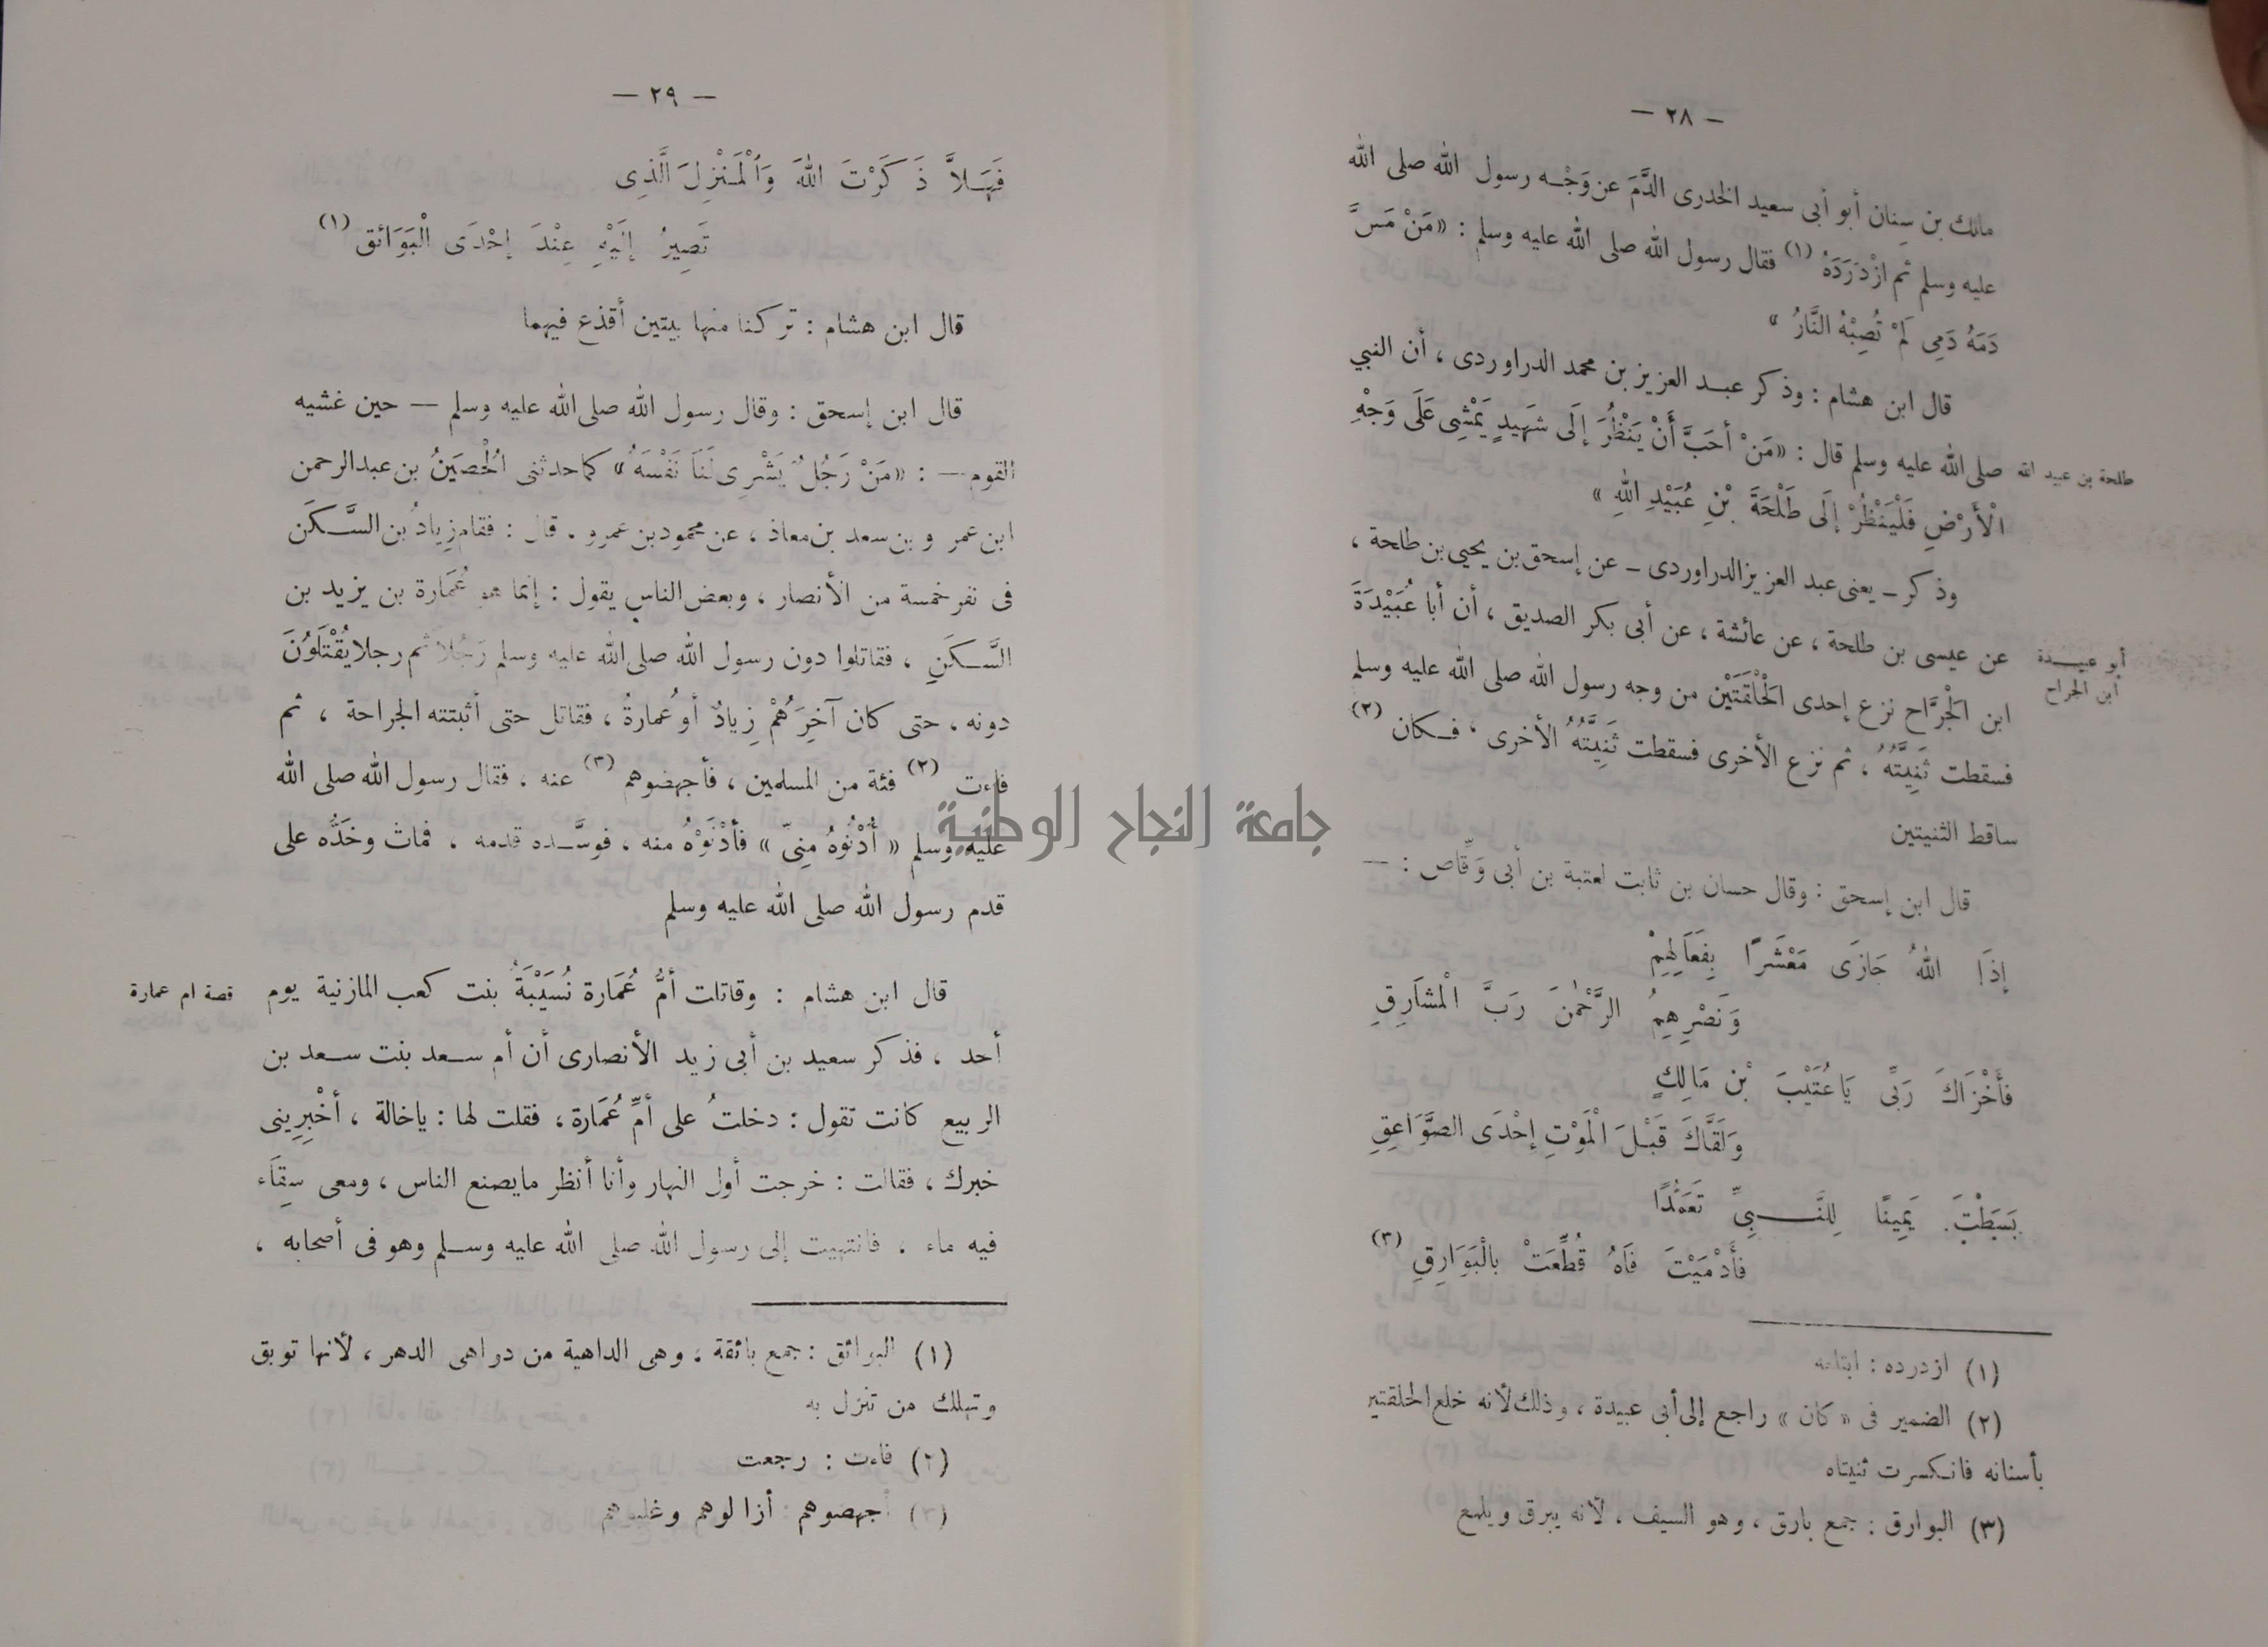 — ٢٨ —
مالك بن سِنان أبو أبى سعيد الخدرى الدَّمَ عن وَجْـه رسول الله صلى الله
عليه وسلم ثم ازْدَرَدَهُ (١) فقال رسول الله صلى الله عليه وسلم : «مَنْ مَسَّ
دَمَهُ دَمِى لَمْ تُصِبْهُ النَّارُ »
قال ابن هشام : وذكر عبـد العزيز بن محمد الدراوردى ، أن النبي
صلى الله عليه وسلم قال : «مَنْ أحَبَّ أَنْ يَنْظُرَ إلَى شَهِيدٍ يَمْشِى عَلَى وَجْهِ
طلحة بن عبيد الله
الْأَرْضِ فَلْيَنْظُرْ إلَى طَلْحَةَ بْنِ عُبَيْدِ اللهِ »
وذكر ـ يعنى عبد العزيز الدراوردى ـ عن إسحق بن يحيى بن طلحة ،
عن عيسى بن طلحة ، عن عائشة ، عن أبى بكر الصديق ، أن أبا عُبَيْدَةَ
أبو عبيـدة
ابن الجراح
ابن الْجَرَّاح نزع إحدى الْحَلْقَتَيْن من وجه رسول الله صلى الله عليه وسلم
فسقطت ثَنِيَّتُهُ ، ثم نزع الأخرى فسقطت ثَنِيَّتُهُ الأخرى ، فـكان (٢)
ساقط الثنيتين
قال ابن إسحق : وقال حسان بن ثابت لعتبة بن أبى وَقَّاص : —
إذَا اللهُ جَازَى مَعْشَرًا بِفَعَالِهِمْ
وَنَصْرِهِمُ الرَّحْمٰنَ رَبَّ الْمشَارِقِ
فأَخْزَاكَ رَبِّى يَا عُتَيْبَ بْنَ مَالِكٍ
وَلَقَّاكَ قَبْلَ الْمَوْتِ إحْدَى الصَّوَاعِقِ
بَسَطْتَ يَمِينًا لِلنَّـــبِىِّ تَعَمُّدًا
فأَدْمَيْتَ فَاهُ قُطِّعَتْ بالْبَوَارِقِ (٣)
(١) ازدرده : ابتلعه
(٢) الضمير فى «كان» راجع إلى أبى عبيدة ، وذلك لأنه خلع الحلقتير
بأسنانه فانـكسرت ثنيتاه
(٣) البوارق : جمع بارق ، وهو السيف ، لأنه يبرق ويلمع
— ٢٩ —
فَهَـلاَّ ذَكَرْتَ اللهَ وَالْمَنْزِلَ الَّذِى
تَصِيرُ إلَيْهِ عِنْدَ إحْدَى الْبَوَائق (١)
قال ابن هشام : تركنا منها بيتين أقذع فيهما
قال ابن إسحق : وقال رسول الله صلى الله عليه وسلم — حين غشيه
القوم — : «مَنْ رَجُلٌ يَشْرِى لَنَا نَفْسَهُ» كما حدثنى الْحُصَيْنُ بن عبد الرحمن
ابن عمر و بن سعد بن معاذ ، عن محمود بن عمرو . قال : فقام زِيادُ بن السَّـكَن
فى نفر خمسة من الأنصار ، وبعض الناس يقول : إنما هو عُمَارة بن يزيد بن
السَّـكَنِ ، فقاتلوا دون رسول الله صلى الله عليه وسلم رَجُلاً ثم رجلا يُقْتَلُونَ
دونه ، حتى كان آخِرَهُمْ زِيادٌ أو عُمارةُ ، فقاتل حتى أثبتته الجراحة ، ثم
فاءت (٢) فئة من المسلمين ، فأجهضوهم (٣) عنه ، فقال رسول الله صلى الله
عليه وسلم « أُدْنُوهُ مِنِىّ » فأدْنَوْهُ منه ، فوسَّـده قدمه ، فمات وخَدُّه على
قدم رسول الله صلى الله عليه وسلم
قال ابن هشام : وقاتلت أمُّ عُمَارة نُسَيْبَةُ بنت كعب المازنية يوم
قصة ام عمارة
أحد ، فذكر سعيد بن أبى زيد الأنصارى أن أم سـعد بنت سـعد بن
الربيع كانت تقول : دخلتُ على أمِّ عُمَارة ، فقلت لها : ياخالة ، أخْبِرِينى
خبرك ، فقالت : خرجت أول النهار وأنا أنظر مايصنع الناس ، ومعى سِقَاء
فيه ماء ، فانتهيت إلى رسول الله صلى الله عليه وسـلم وهو فى أصحابه ،
(١) البوائق : جمع بائقة ، وهى الداهية من دواهى الدهر ، لأنها توبق
وتهلك من تنزل به
(٢) فاءت : رجعت
(٣) جهضوهم أزالوهم وغلبوهم
جامعة النجاح الوطنية